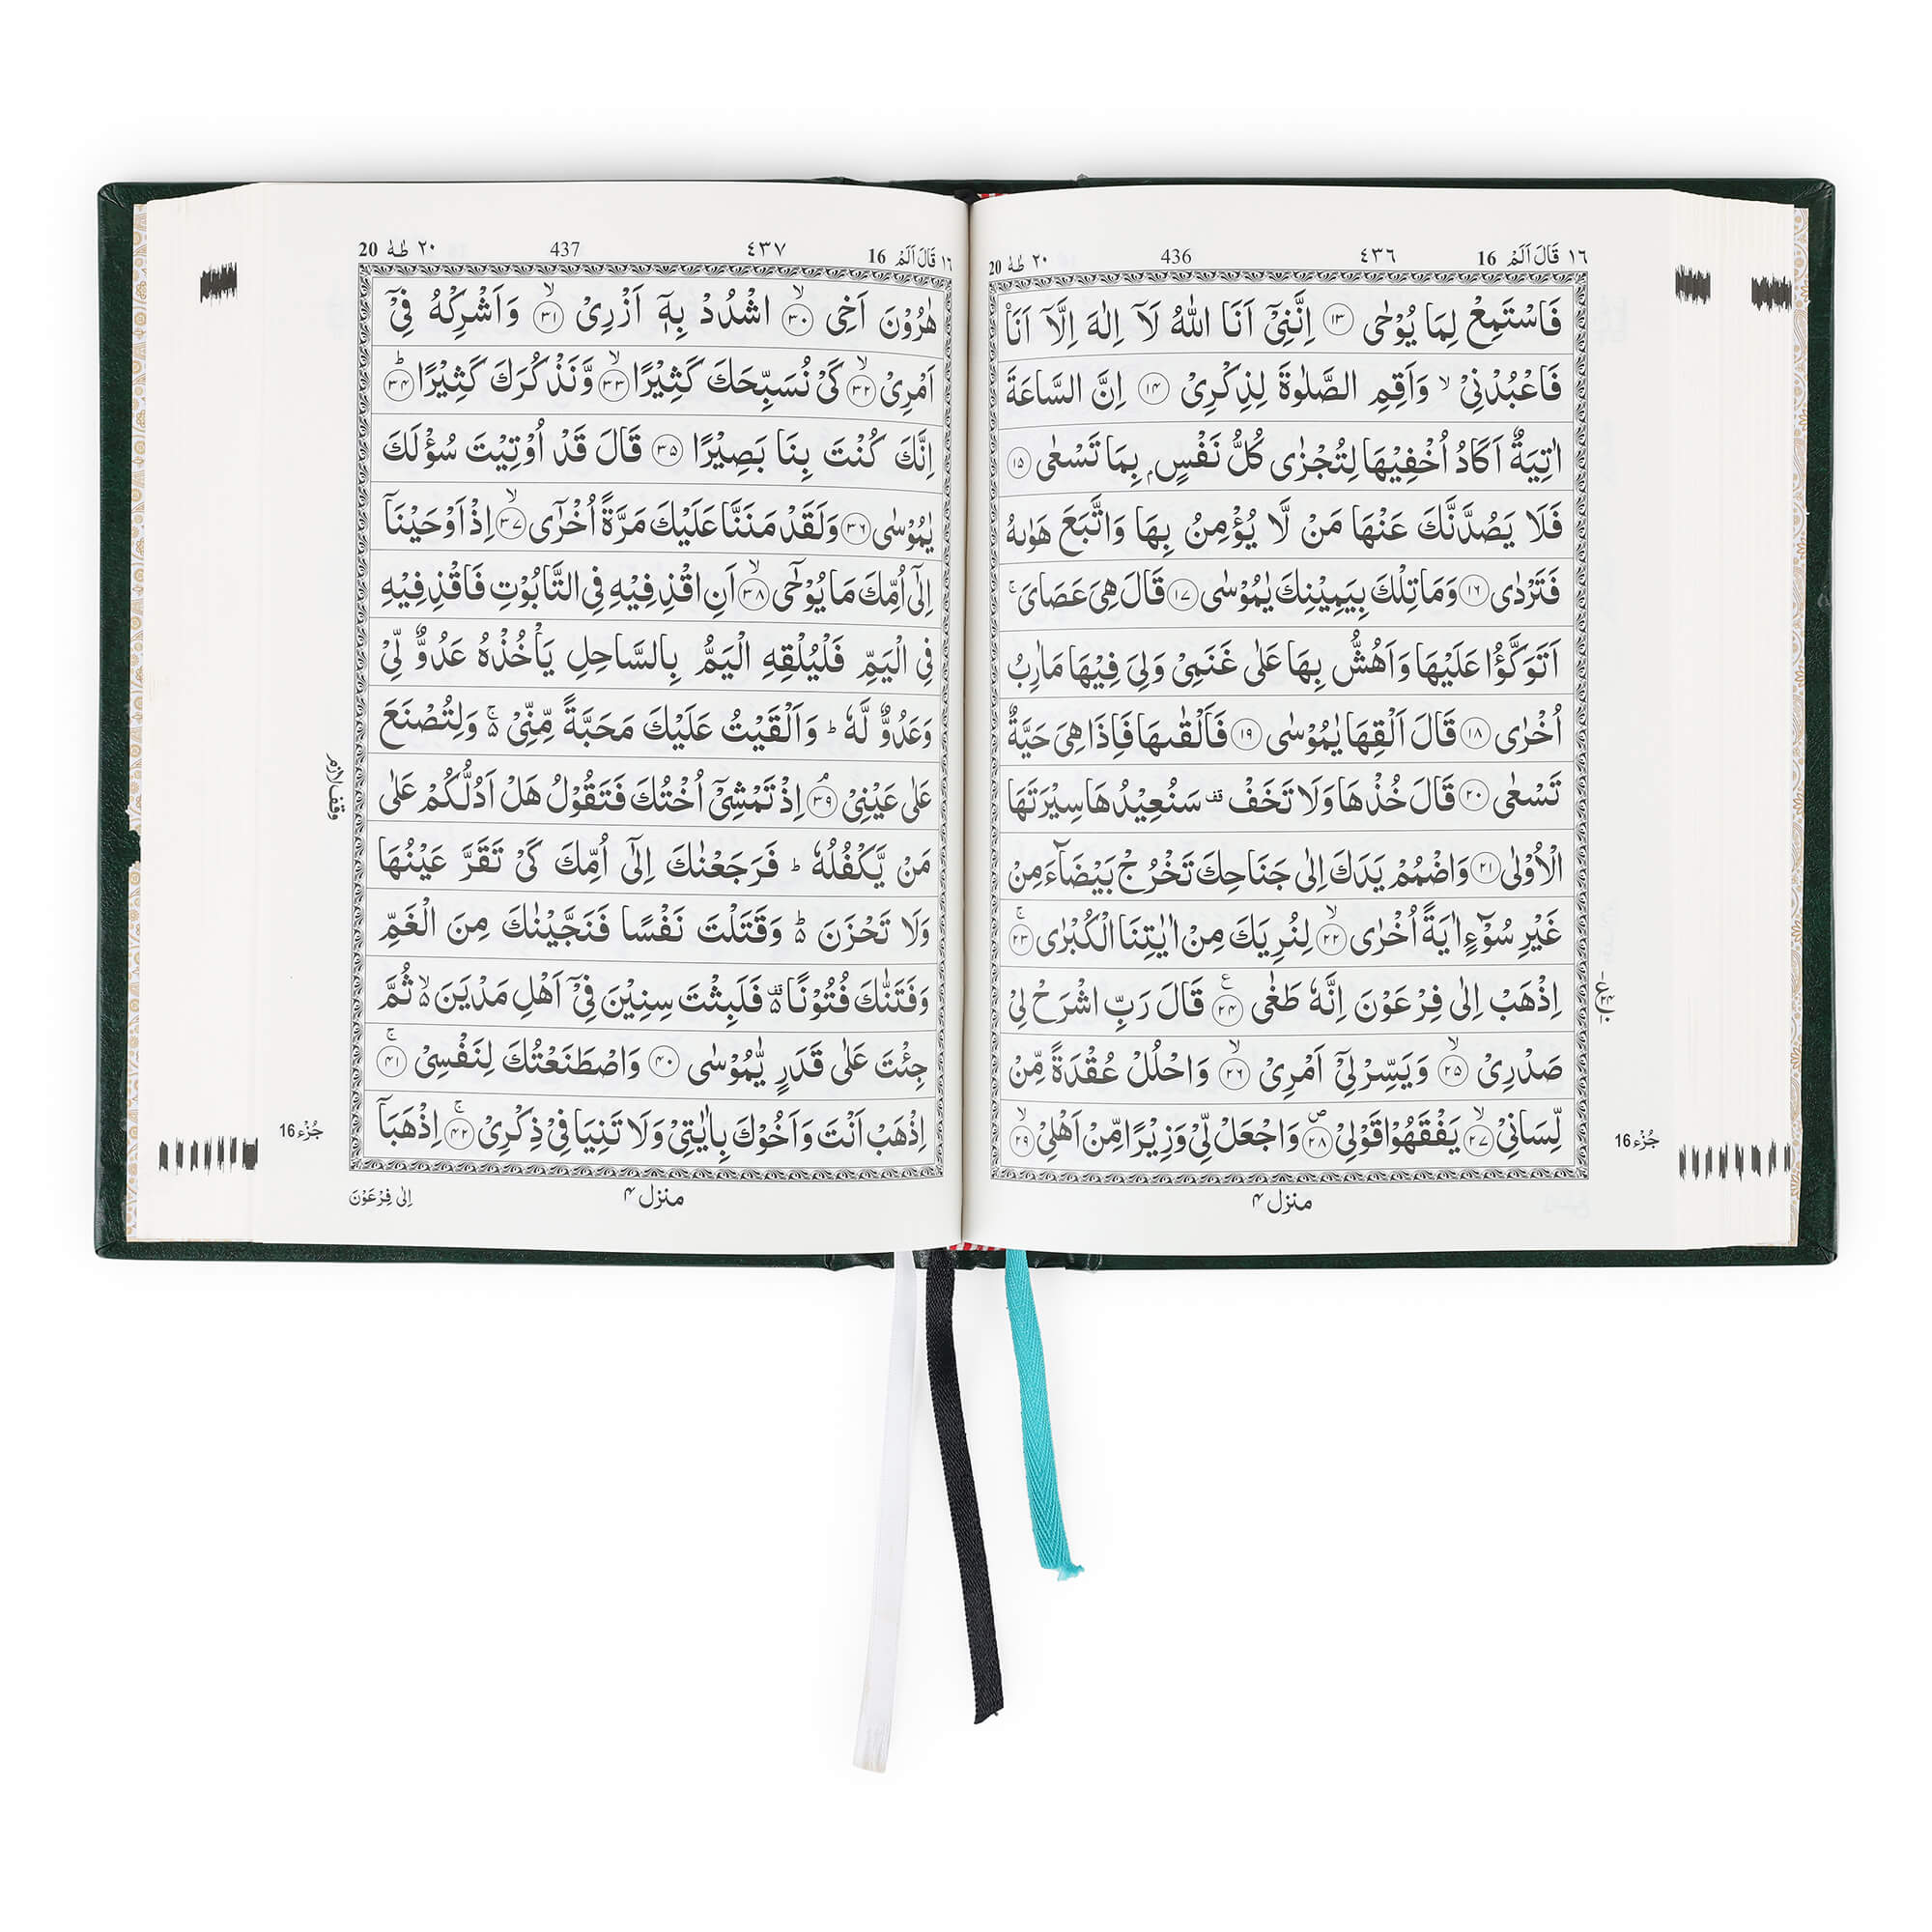 ١٦ قَالَ اَلَمْ 16 ٤٣٦ 436 ٢٠ طٰهٰ 20
فَاسْتَمِعْ لِمَا يُوْحٰى ١٣ اِنَّنِيْٓ اَنَا اللّٰهُ لَآ اِلٰهَ اِلَّآ اَنَا۠
فَاعْبُدْنِيْ ۙ وَاَقِمِ الصَّلٰوةَ لِذِكْرِيْ ١٤ اِنَّ السَّاعَةَ
اٰتِيَةٌ اَكَادُ اُخْفِيْهَا لِتُجْزٰى كُلُّ نَفْسٍۢ بِمَا تَسْعٰى ١٥
فَلَا يَصُدَّنَّكَ عَنْهَا مَنْ لَّا يُؤْمِنُ بِهَا وَاتَّبَعَ هَوٰىهُ
فَتَرْدٰى ١٦ وَمَا تِلْكَ بِيَمِيْنِكَ يٰمُوْسٰى ١٧ قَالَ هِيَ عَصَايَ ۚ
اَتَوَكَّؤُا عَلَيْهَا وَاَهُشُّ بِهَا عَلٰى غَنَمِيْ وَلِيَ فِيْهَا مَاٰرِبُ
اُخْرٰى ١٨ قَالَ اَلْقِهَا يٰمُوْسٰى ١٩ فَاَلْقٰىهَا فَاِذَا هِيَ حَيَّةٌ
تَسْعٰى ٢٠ قَالَ خُذْهَا وَلَا تَخَفْ ۥقف سَنُعِيْدُهَا سِيْرَتَهَا
الْاُوْلٰى ٢١ وَاضْمُمْ يَدَكَ اِلٰى جَنَاحِكَ تَخْرُجْ بَيْضَآءَ مِنْ
غَيْرِ سُوْٓءٍ اٰيَةً اُخْرٰى ۙ ٢٢ لِنُرِيَكَ مِنْ اٰيٰتِنَا الْكُبْرٰى ۚ ٢٣
اِذْهَبْ اِلٰى فِرْعَوْنَ اِنَّهٗ طَغٰى ٢٤ قَالَ رَبِّ اشْرَحْ لِيْ
صَدْرِيْ ۙ ٢٥ وَيَسِّرْ لِيْٓ اَمْرِيْ ۙ ٢٦ وَاحْلُلْ عُقْدَةً مِّنْ
لِّسَانِيْ ۙ ٢٧ يَفْقَهُوْا قَوْلِيْ ۖ ٢٨ وَاجْعَلْ لِّيْ وَزِيْرًا مِّنْ اَهْلِيْ ۙ ٢٩
جُزْء 16
منزل ۴
١٦ قَالَ اَلَمْ 16 ٤٣٧ 437 ٢٠ طٰهٰ 20
هٰرُوْنَ اَخِى ۙ ٣٠ اشْدُدْ بِهٖٓ اَزْرِيْ ۙ ٣١ وَاَشْرِكْهُ فِيْٓ
اَمْرِيْ ۙ ٣٢ كَيْ نُسَبِّحَكَ كَثِيْرًا ۙ ٣٣ وَّنَذْكُرَكَ كَثِيْرًا ؕ ٣٤
اِنَّكَ كُنْتَ بِنَا بَصِيْرًا ٣٥ قَالَ قَدْ اُوْتِيْتَ سُؤْلَكَ
يٰمُوْسٰى ٣٦ وَلَقَدْ مَنَنَّا عَلَيْكَ مَرَّةً اُخْرٰٓى ۙ ٣٧ اِذْ اَوْحَيْنَآ
اِلٰٓى اُمِّكَ مَا يُوْحٰٓى ۙ ٣٨ اَنِ اقْذِفِيْهِ فِي التَّابُوْتِ فَاقْذِفِيْهِ
فِي الْيَمِّ فَلْيُلْقِهِ الْيَمُّ بِالسَّاحِلِ يَاْخُذْهُ عَدُوٌّ لِّيْ
وَعَدُوٌّ لَّهٗ ؕ وَاَلْقَيْتُ عَلَيْكَ مَحَبَّةً مِّنِّيْ ۚ۬ وَلِتُصْنَعَ
وقف لازم
عَلٰى عَيْنِيْ ۘ ٣٩ اِذْ تَمْشِيْٓ اُخْتُكَ فَتَقُوْلُ هَلْ اَدُلُّكُمْ عَلٰى
مَنْ يَّكْفُلُهٗ ؕ فَرَجَعْنٰكَ اِلٰٓى اُمِّكَ كَيْ تَقَرَّ عَيْنُهَا
وَلَا تَحْزَنَ ؕ۬ وَقَتَلْتَ نَفْسًا فَنَجَّيْنٰكَ مِنَ الْغَمِّ
وَفَتَنّٰكَ فُتُوْنًا ۥقف۬ فَلَبِثْتَ سِنِيْنَ فِيْٓ اَهْلِ مَدْيَنَ ۙ۬ ثُمَّ
جِئْتَ عَلٰى قَدَرٍ يّٰمُوْسٰى ٤٠ وَاصْطَنَعْتُكَ لِنَفْسِيْ ۚ ٤١
اِذْهَبْ اَنْتَ وَاَخُوْكَ بِاٰيٰتِيْ وَلَا تَنِيَا فِيْ ذِكْرِيْ ۚ ٤٢ اِذْهَبَآ
جُزْء 16
منزل ۴
اِلٰى فِرْعَوْنَ